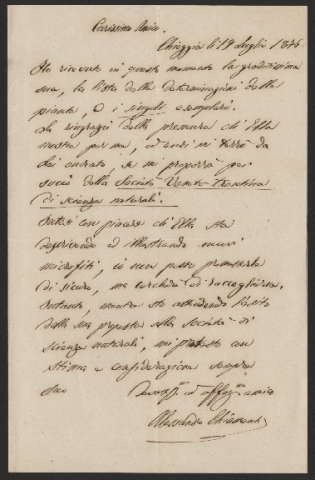 Carissimo Amico.
Chioggia li 19 Luglio 1876
Ho ricevuto in questo momento la gratissima
sua, la lista delle determinazioni delle
piante e i singoli esemplari.
La ringrazio della premura ch'Ella
mostra per me, ed anzi mi terrò da
Lei onorato, se mi proporrà per
socio della Società Veneto-Trentina
di scienze naturali.
con piacere ch'Ella sta
descrivendo ed illustrando nuovi
microfiti, io non posso promettere
di sicuro, ma cercherò di raccogliere.
Intanto, mentre sto attendendo l'esito
della sua proposta alla Società di
scienze naturali, mi protesto con
stima e considerazione sempre
suo
ed affez. amico
Alessandro